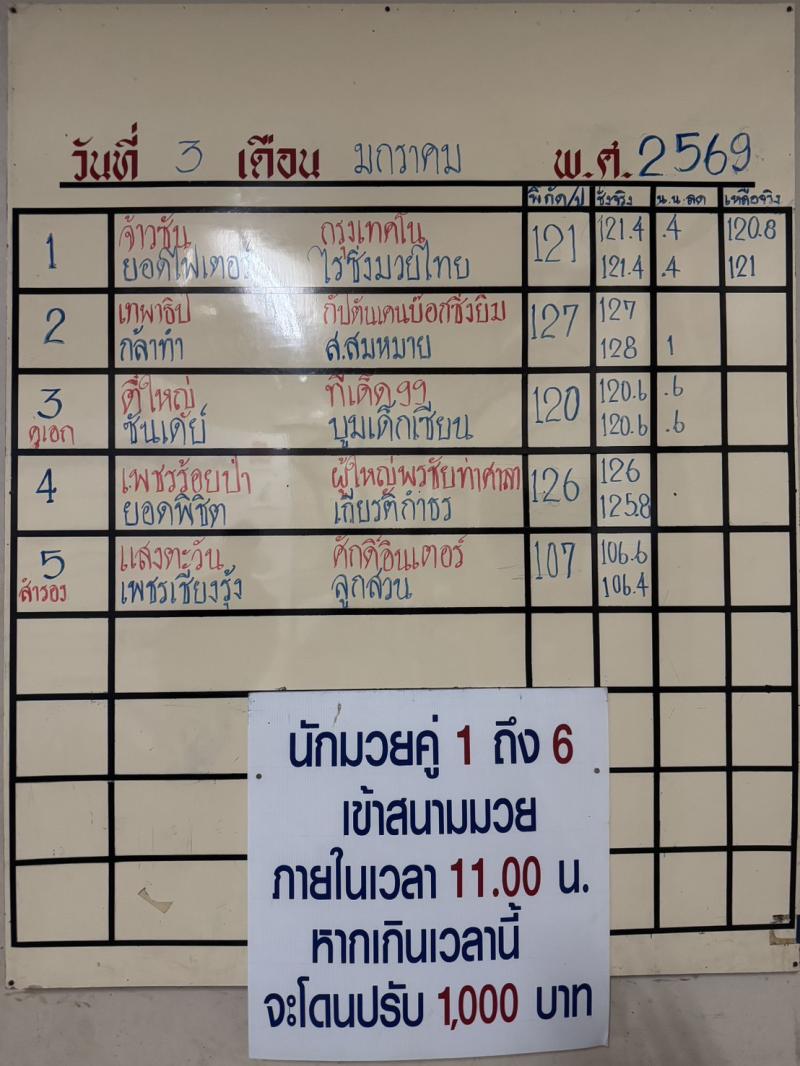 วันที่ 3 เดือน มกราคม พ.ศ. 2569
พิกัด/ป ชั่งจริง น.น.ลด เหลือจริง
1 จ้าวซัน กรุงเทคโน 121 121.4 .4 120.8
ยอดไฟเตอร์ ไรซิ่งมวยไทย 121.4 .4 121
2 เทพาธิป กัปตันเคนบ๊อกซิ่งยิม 127 127
กล้าทำ ส.สมหมาย 128 1
3 ตี๋ใหญ่ ทีเด็ด99 120 120.6 .6
คู่เอก ซันเดย์ บูมเด็กเซียน 120.6 .6
4 เพชรร้อยป่า ผู้ใหญ่พรชัยท่าศาลา 126 126
ยอดพิชิต เกียรติกำธร 125.8
5 แสงตะวัน ศักดิ์อินเตอร์ 107 106.6
สำรอง เพชรเชียงรุ้ง ลูกสวน 106.4
นักมวยคู่ 1 ถึง 6
เข้าสนามมวย
ภายในเวลา 11.00 น.
หากเกินเวลานี้
จะโดนปรับ 1,000 บาท